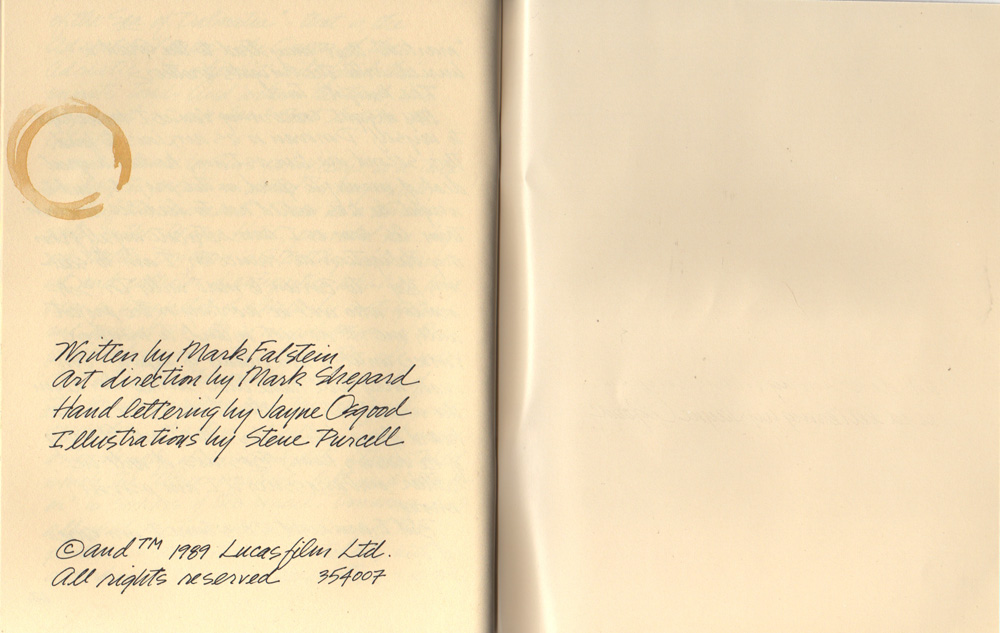 Written by Mark Falstein
Art direction by Mark Shepard
Hand lettering by Jayne Osgood
Illustrations by Steve Purcell
© and ™ 1989 Lucasfilm Ltd.
All rights reserved 354007